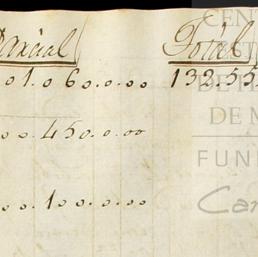 Parcial Total
01.060.0.00 132.55
00.450.0.00
00.100.0.00
CEN
DE
DE M
FUN
Car